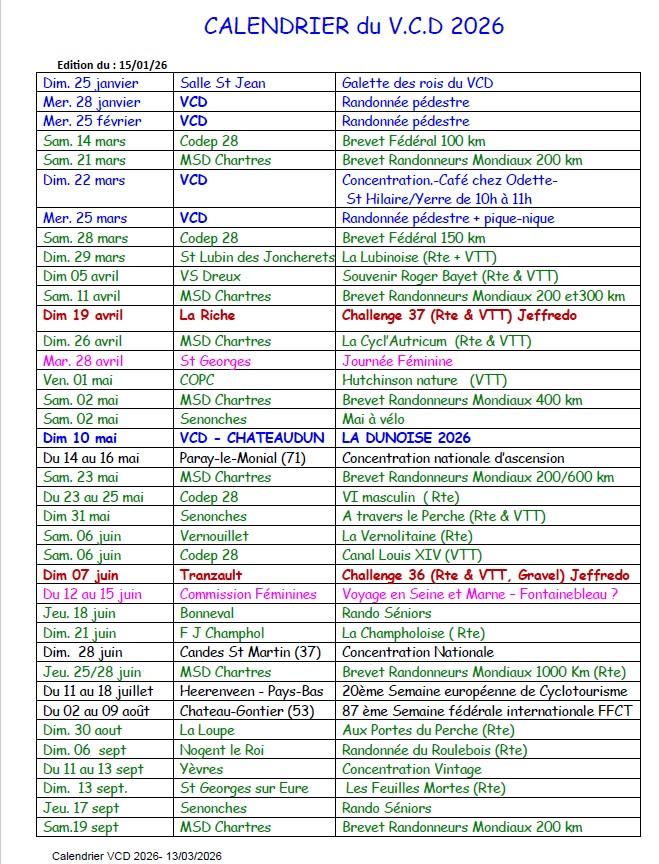 CALENDRIER du V.C.D 2026
Edition du : 15/01/26
Dim. 25 janvier Salle St Jean Galette des rois du VCD
Mer. 28 janvier VCD Randonnée pédestre
Mer. 25 février VCD Randonnée pédestre
Sam. 14 mars Codep 28 Brevet Fédéral 100 km
Sam. 21 mars MSD Chartres Brevet Randonneurs Mondiaux 200 km
Dim. 22 mars VCD Concentration.-Café chez Odette-
St Hilaire/Yerre de 10h à 11h
Mer. 25 mars VCD Randonnée pédestre + pique-nique
Sam. 28 mars Codep 28 Brevet Fédéral 150 km
Dim. 29 mars St Lubin des Joncherets La Lubinoise (Rte + VTT)
Dim 05 avril VS Dreux Souvenir Roger Bayet (Rte & VTT)
Sam. 11 avril MSD Chartres Brevet Randonneurs Mondiaux 200 et300 km
Dim 19 avril La Riche Challenge 37 (Rte & VTT) Jeffredo
Dim. 26 avril MSD Chartres La Cycl'Autricum (Rte & VTT)
Mar. 28 avril St Georges Journée Féminine
Ven. 01 mai COPC Hutchinson nature (VTT)
Sam. 02 mai MSD Chartres Brevet Randonneurs Mondiaux 400 km
Sam. 02 mai Senonches Mai à vélo
Dim 10 mai VCD - CHATEAUDUN LA DUNOISE 2026
Du 14 au 16 mai Paray-le-Monial (71) Concentration nationale d'ascension
Sam. 23 mai MSD Chartres Brevet Randonneurs Mondiaux 200/600 km
Du 23 au 25 mai Codep 28 VI masculin ( Rte)
Dim 31 mai Senonches A travers le Perche (Rte & VTT)
Sam. 06 juin Vernouillet La Vernolitaine (Rte)
Sam. 06 juin Codep 28 Canal Louis XIV (VTT)
Dim 07 juin Tranzault Challenge 36 (Rte & VTT, Gravel) Jeffredo
Du 12 au 15 juin Commission Féminines Voyage en Seine et Marne – Fontainebleau ?
Jeu. 18 juin Bonneval Rando Séniors
Dim. 21 juin F J Champhol La Champholoise ( Rte)
Dim. 28 juin Candes St Martin (37) Concentration Nationale
Jeu. 25/28 juin MSD Chartres Brevet Randonneurs Mondiaux 1000 Km (Rte)
Du 11 au 18 juillet Heerenveen - Pays-Bas 20ème Semaine européenne de Cyclotourisme
Du 02 au 09 août Chateau-Gontier (53) 87 ème Semaine fédérale internationale FFCT
Dim. 30 aout La Loupe Aux Portes du Perche (Rte)
Dim. 06 sept Nogent le Roi Randonnée du Roulebois (Rte)
Du 11 au 13 sept Yèvres Concentration Vintage
Dim. 13 sept. St Georges sur Eure Les Feuilles Mortes (Rte)
Jeu. 17 sept Senonches Rando Séniors
Sam.19 sept MSD Chartres Brevet Randonneurs Mondiaux 200 km
Calendrier VCD 2026- 13/03/2026